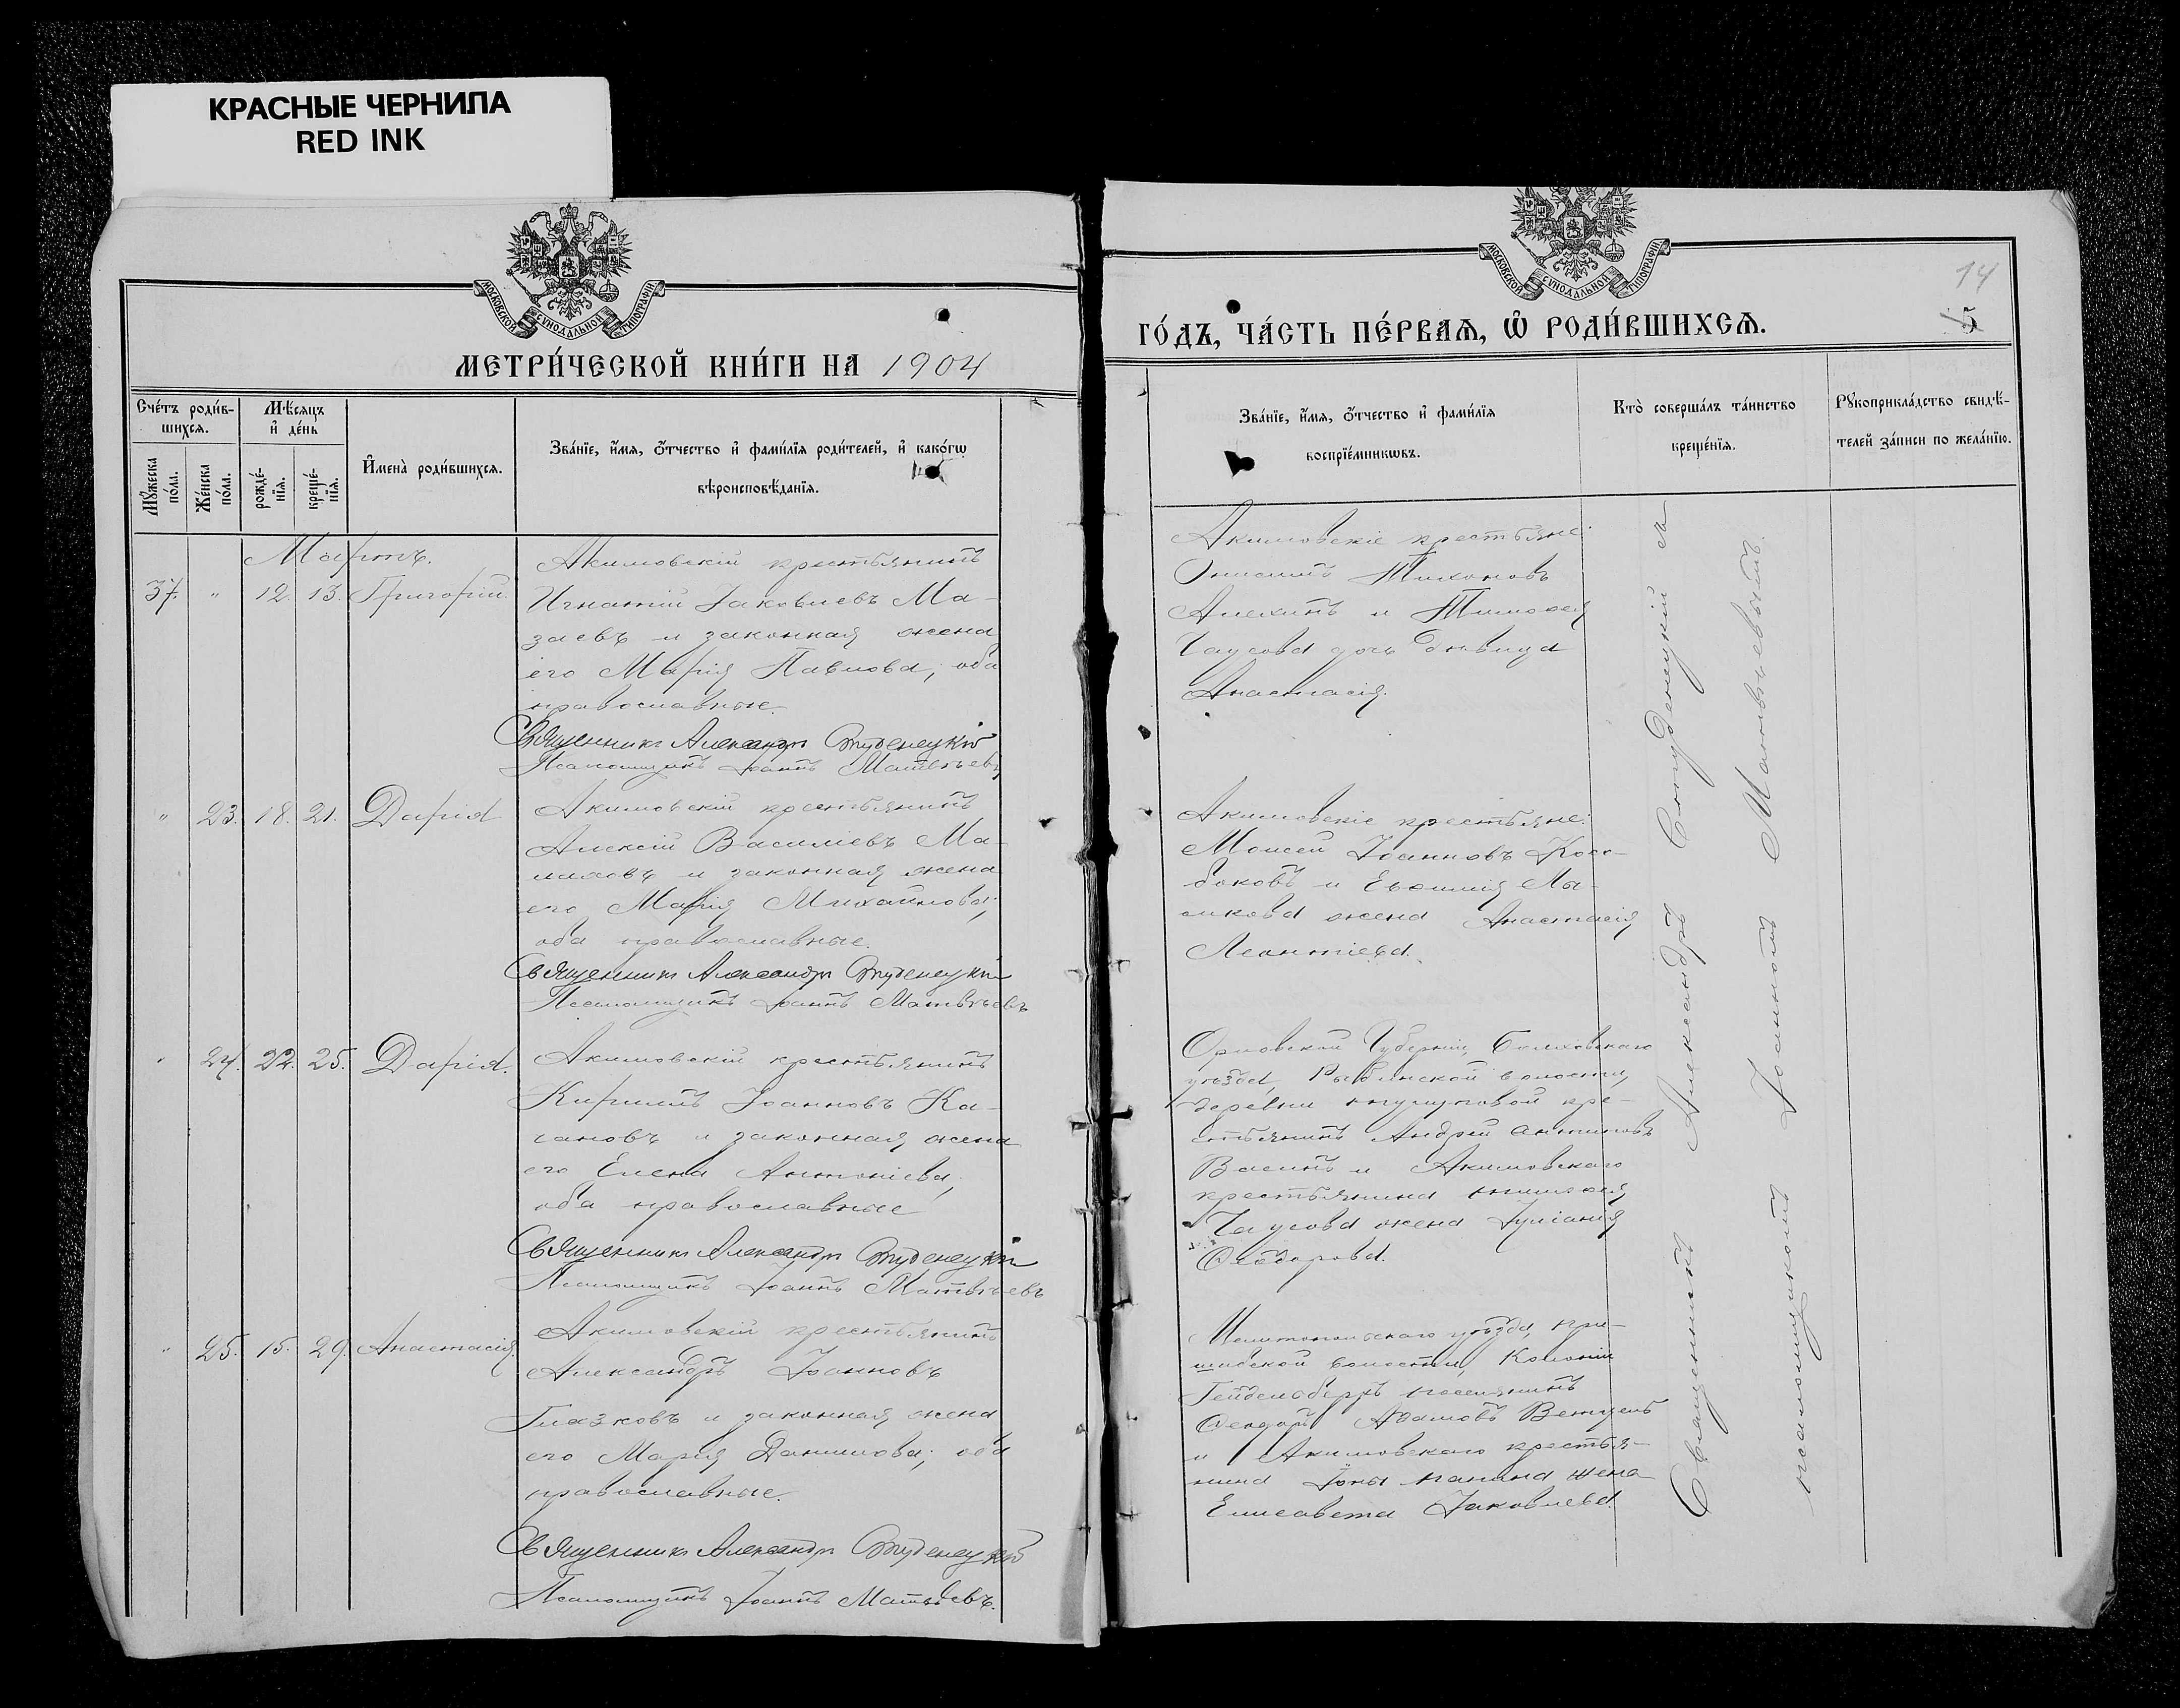 КРАСНЫЕ ЧЕРНИЛА
RED INK
МОСКОВСКОЙ СѴНОДАЛЬНОЙ ТИПОГРАФІИ
МЕТРИ́ЧЕСКОЙ КНИ́ГИ НА 1904
Сче́тъ роди́в-
шихсѧ.
Мѣ́сѧцъ
и҆ де́нь
Мꙋ́жеска
по́ла.
Же́нска
по́ла.
рожде́-
нїѧ.
креще́-
нїѧ.
И҆мена̀ роди́вшихсѧ.
Зва́нїе, и҆́мѧ, ѻ҆́тчество и҆ фамилїѧ роди́телей, и҆ како́гѡ
вѣроисповѣ́данїѧ.
Мартъ.
37. " 12. 13. Григорій.
Акимовскій крестьянинъ
Игнатій Іаковлевъ Ма-
заевъ и законная жена
его Марія Павлова, оба
православные.
Священникъ Александръ Студенецкій
Псаломщикъ Іоаннъ Матвѣевъ
" 23. 18. 21. Дарія
Акимовскій крестьянинъ
Алексій Василіевъ Ма-
лаховъ и законная жена
его Марія Михаилова,
оба православные.
Священникъ Александръ Студенецкій
Псаломщикъ Іоаннъ Матвѣевъ
" 24. 22. 25. Дарія.
Акимовскій крестьянинъ
Кириллъ Іоанновъ Ка-
чановъ и законная жена
его Елена Антоніева,
оба православные
Священникъ Александръ Студенецкій
Псаломщикъ Іоаннъ Матвѣевъ
" 25. 15. 29. Анастасія.
Акимовскій крестьянинъ
Александръ Іоанновъ
Глазковъ и законная жена
его Марія Даніилова; оба
православные.
Священникъ Александръ Студенецкій
Псаломщикъ Іоаннъ Матвѣевъ.
МОСКОВСКОЙ СѴНОДАЛЬНОЙ ТИПОГРАФІИ
14
ГО́ДЪ, ЧА́СТЬ ПЕ́РВАѦ, Ѡ҆ РОДИ́ВШИХСѦ.
5
Зва́нїе, и҆́мѧ, ѻ҆́тчество и҆ фами́лїѧ
воспрїе́мникѡвъ.
Кто̀ соверша́лъ та́инство
креще́нїѧ.
Рꙋкоприкла́дство свидѣ́-
телей за́писи по жела́нїю.
Акимовскіе крестьяне:
Онисимъ Тихоновъ
Алехинъ и Тимоѳея
Чаусова дочь дѣвица
Анастасія.
Акимовскіе крестьяне:
Моисей Іоанновъ Косо-
боковъ и Евѳимія Лы-
жена Анастасія
Леонтіева.
Орловской Губерніи, Болховскаго
уѣзда, волости,
деревни кре-
стьянинъ Андрей Антиповъ
Васинъ и Акимовскаго
крестьянина тимоѳея
Чаусова жена Іуліанія
Ѳеодорова.
Мелитопольскаго уѣзда, При-
шибской волости, Колоніи
Гейдельбергъ поселянинъ
Ѳеодоръ Адамовъ Ветцель
и Акимовскаго крестья-
нина Іоны папина жена
Елисавета Іаковлева.
Священникъ Александръ Студенецкій съ
псаломщикомъ Іоанномъ Матвѣевымъ.